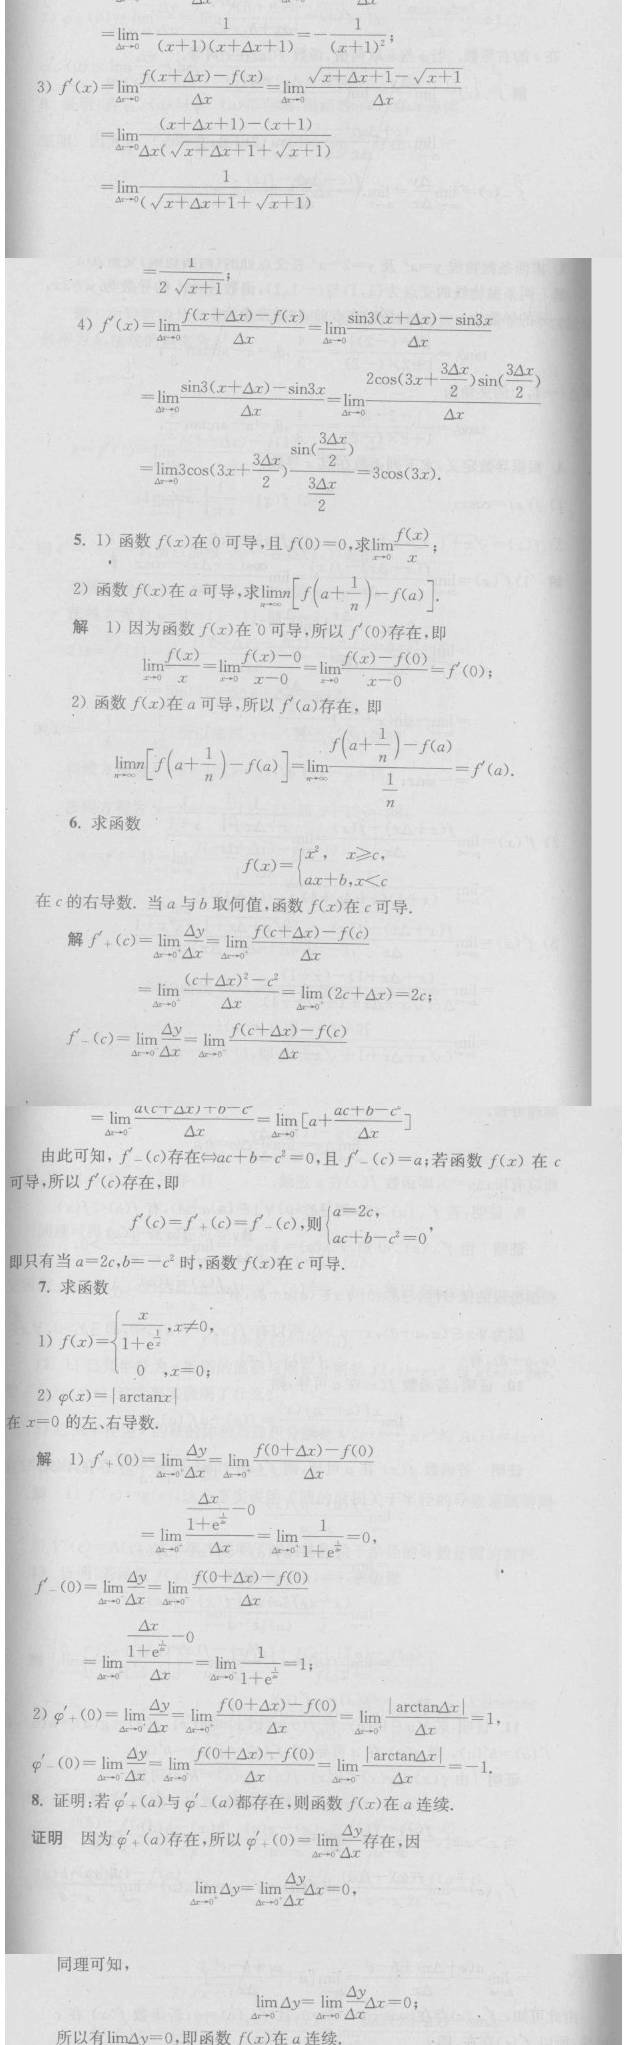 =lim_{Δx→0} - 1/((x+1)(x+Δx+1)) = -1/(x+1)²;
3) f′(x)=lim_{Δx→0} (f(x+Δx)-f(x))/Δx =lim_{Δx→0} (√(x+Δx+1)-√(x+1))/Δx
=lim_{Δx→0} ((x+Δx+1)-(x+1))/(Δx(√(x+Δx+1)+√(x+1)))
=lim_{Δx→0} 1/(√(x+Δx+1)+√(x+1))
=1/(2√(x+1));
4) f′(x)=lim_{Δx→0} (f(x+Δx)-f(x))/Δx =lim_{Δx→0} (sin3(x+Δx)-sin3x)/Δx
=lim_{Δx→0} (sin3(x+Δx)-sin3x)/Δx =lim_{Δx→0} (2cos(3x+3Δx/2)sin(3Δx/2))/Δx
=lim_{Δx→0} 3cos(3x+3Δx/2) sin(3Δx/2)/(3Δx/2) =3cos(3x).
5. 1) 函数 f(x)在 0 可导,且 f(0)=0,求lim_{x→0} f(x)/x;
2) 函数 f(x)在 a 可导,求lim_{n→∞} n[f(a+1/n)-f(a)].
解 1) 因为函数 f(x)在 0 可导,所以 f′(0)存在,即
lim_{x→0} f(x)/x =lim_{x→0} (f(x)-0)/(x-0) =lim_{x→0} (f(x)-f(0))/(x-0) =f′(0);
2) 函数 f(x)在 a 可导,所以 f′(a)存在, 即
lim_{n→∞} n[f(a+1/n)-f(a)]=lim_{n→∞} (f(a+1/n)-f(a))/(1/n) =f′(a).
6. 求函数
f(x)={x², x≥c,
ax+b,x<c
在 c 的右导数. 当 a 与 b 取何值,函数 f(x)在 c 可导.
解 f′₊(c)=lim_{Δx→0⁺} Δy/Δx =lim_{Δx→0⁺} (f(c+Δx)-f(c))/Δx
=lim_{Δx→0⁺} ((c+Δx)²-c²)/Δx =lim_{Δx→0⁺} (2c+Δx)=2c;
f′₋(c)=lim_{Δx→0⁻} Δy/Δx =lim_{Δx→0⁻} (f(c+Δx)-f(c))/Δx
=lim_{Δx→0⁻} (a(c+Δx)+b-c²)/Δx =lim_{Δx→0⁻} [a+(ac+b-c²)/Δx]
由此可知, f′₋(c)存在⇔ac+b-c²=0,且 f′₋(c)=a;若函数 f(x) 在 c
可导,所以 f′(c)存在,即
f′(c)=f′₊(c)=f′₋(c),则{a=2c,
ac+b-c²=0,
即只有当 a=2c,b=-c² 时,函数 f(x)在 c 可导.
7. 求函数
1) f(x)={x/(1+e^{1/x}),x≠0,
0 ,x=0;
2) φ(x)=|arctanx|
在 x=0 的左、右导数.
解 1) f′₊(0)=lim_{Δx→0⁺} Δy/Δx =lim_{Δx→0⁺} (f(0+Δx)-f(0))/Δx
=lim_{Δx→0⁺} (Δx/(1+e^{1/Δx})-0)/Δx =lim_{Δx→0⁺} 1/(1+e^{1/Δx}) =0,
f′₋(0)=lim_{Δx→0⁻} Δy/Δx =lim_{Δx→0⁻} (f(0+Δx)-f(0))/Δx
=lim_{Δx→0⁻} (Δx/(1+e^{1/Δx})-0)/Δx =lim_{Δx→0⁻} 1/(1+e^{1/Δx}) =1;
2) φ′₊(0)=lim_{Δx→0⁺} Δy/Δx =lim_{Δx→0⁺} (f(0+Δx)-f(0))/Δx =lim_{Δx→0⁺} |arctanΔx|/Δx =1,
φ′₋(0)=lim_{Δx→0⁻} Δy/Δx =lim_{Δx→0⁻} (f(0+Δx)-f(0))/Δx =lim_{Δx→0⁻} |arctanΔx|/Δx =-1.
8. 证明:若 φ′₊(a)与 φ′₋(a)都存在,则函数 f(x)在 a 连续.
证明 因为 φ′₊(a)存在,所以 φ′₊(0)=lim_{Δx→0⁺} Δy/Δx 存在,因
lim_{Δx→0⁺} Δy=lim_{Δx→0⁺} Δy/Δx Δx=0,
同理可知,
lim_{Δx→0⁻} Δy=lim_{Δx→0⁻} Δy/Δx Δx=0;
所以有limΔy=0,即函数 f(x)在 a 连续.